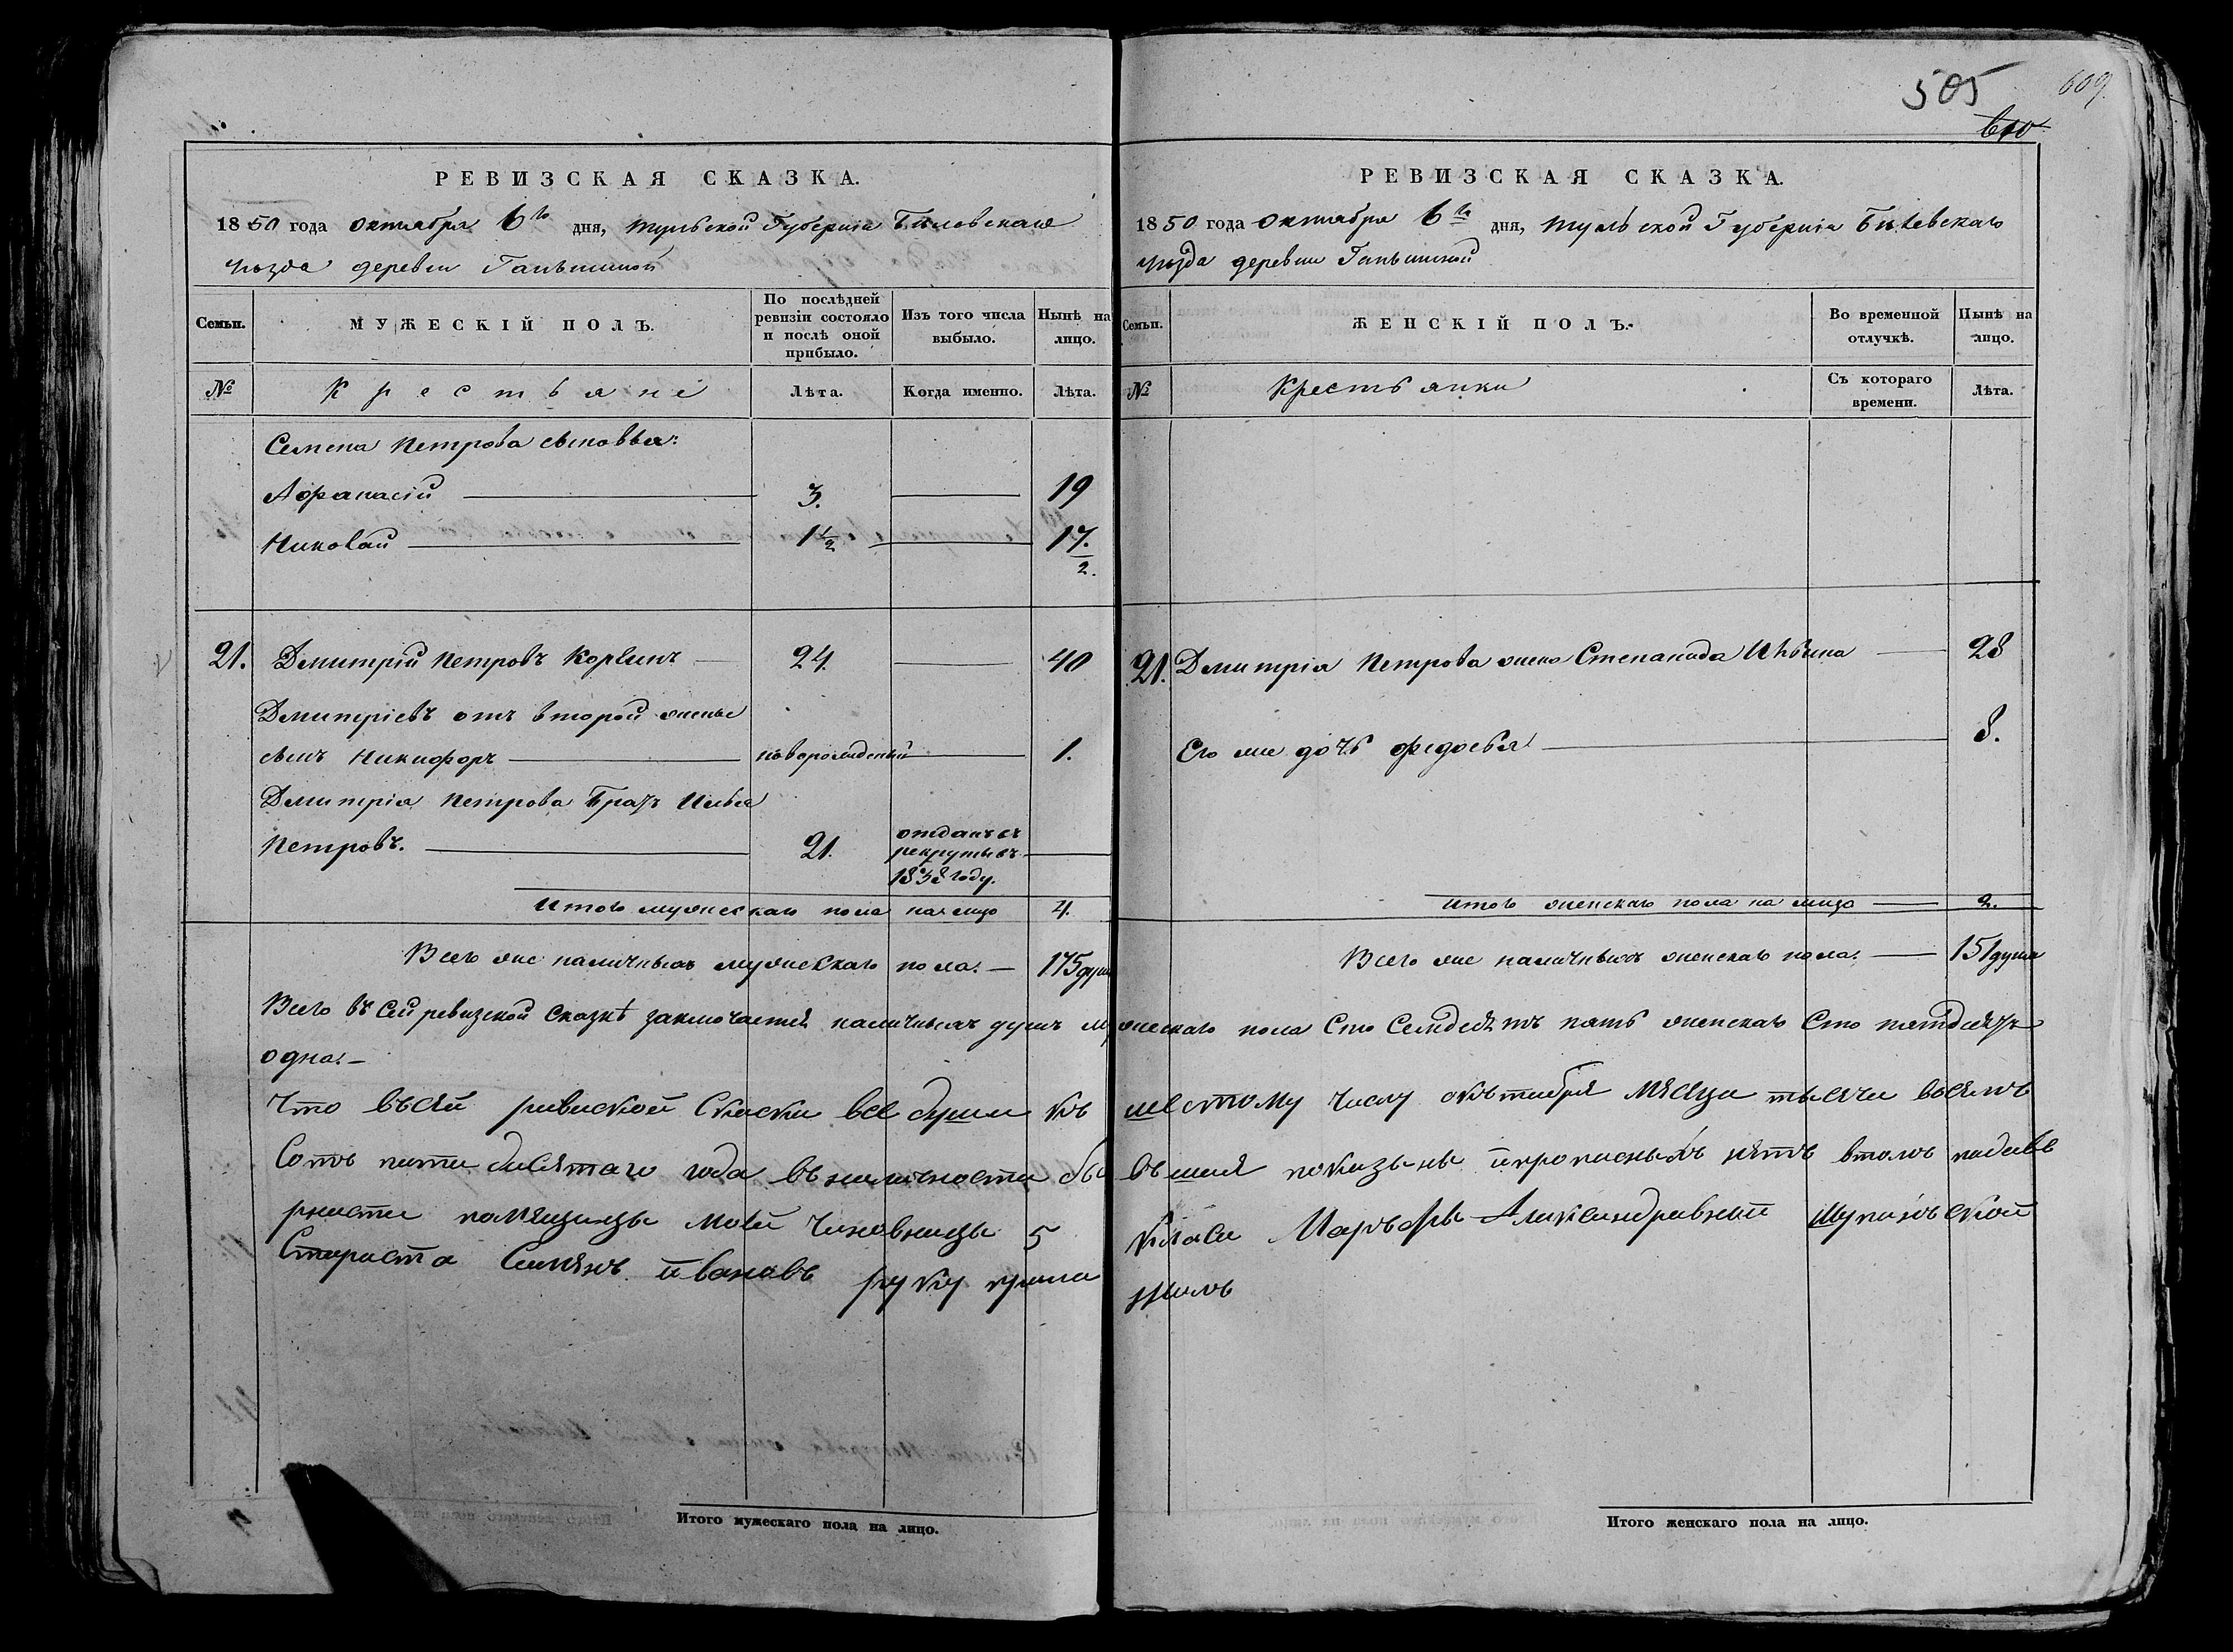 505
609
610
РЕВИЗСКАЯ СКАЗКА.
1850 года октября 6го дня, Тульской Губерніи Бѣлевскаго
уѣзда деревни Ганьшиной
Семьи.
МУЖЕСКІЙ ПОЛЪ.
По послѣдней ревизіи состояло и послѣ оной прибыло.
Изъ того числа выбыло.
Нынѣ на лицо.
№
Крестьяне
Лѣта.
Когда именно.
Лѣта.
Семена Петрова сыновья:
Афанасій 3. 19
Николай 1½ 17.
2.
21. Дмитрій Петровъ 24 40
Дмитріевъ отъ второй жены
сынъ Никифоръ новорожденный 1.
Дмитрія Петрова Братъ Илья
Петровъ. 21. отданъ въ
рекруты въ
1838 году.
Итого мужескаго пола на лицо 4.
Всего же наличныхъ мужескаго пола. — 175 душ
РЕВИЗСКАЯ СКАЗКА.
1850 года октября 6го дня, Тульской Губерніи Бѣлевскаго
уѣзда деревни Ганьшиной
Семьи.
ЖЕНСКІЙ ПОЛЪ.
Во временной отлучкѣ.
Нынѣ на лицо.
№
Крестьянки
Съ котораго времени.
Лѣта.
21. Дмитрія Петрова жена Степанида Ильина 28
Его же дочь Федосья 8.
Итого женскаго пола на лицо 2.
Всего же наличныхъ женскаго пола. — 151 душа
Всего въ сей ревизской сказкѣ заключается наличныхъ душъ мужескаго пола Сто Семдесятъ пять женскаго Сто пятдесятъ
одна. —
Что въсей ривиской Скаски все души къ шестому числу октибря мясяца тысячи восямъ
Сотъ пяти дисятаго года въналичности бывъшия показыны ипрописныхъ нятъ втомъ
помящицы моей чиновницы 5 класи Марьфы Аликсандравный
Стариста Симянъ ивановъ руку прила
жилъ
Итого мужескаго пола на лицо.
Итого женскаго пола на лицо.